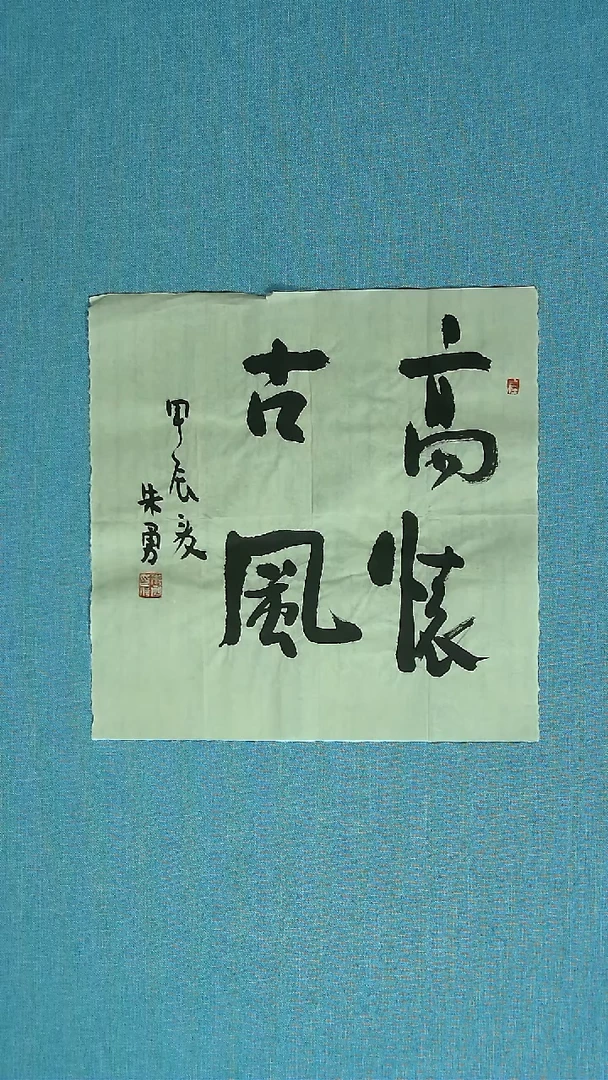 高懷
古風
甲辰夏
朱勇